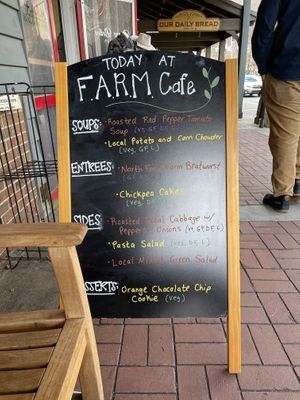 OUR DAILY BREAD
TODAY AT
F.A.R.M. Cafe
SOUPS: • Roasted Red Pepper Tomato
Soup (VG, GF, DF, L)
• Local Potato and Corn Chowder
(Veg, GF, L)
ENTREES: • North Fork Farm Bratwurst
• Chickpea Cakes
SIDES: • Roasted Local Cabbage w/
Peppers + Onions (VG, GF, DF, L)
• Pasta Salad (VG, DF, L)
• Local Mixed Green Salad
DESSERTS: Orange Chocolate Chip
Cookie (Veg)